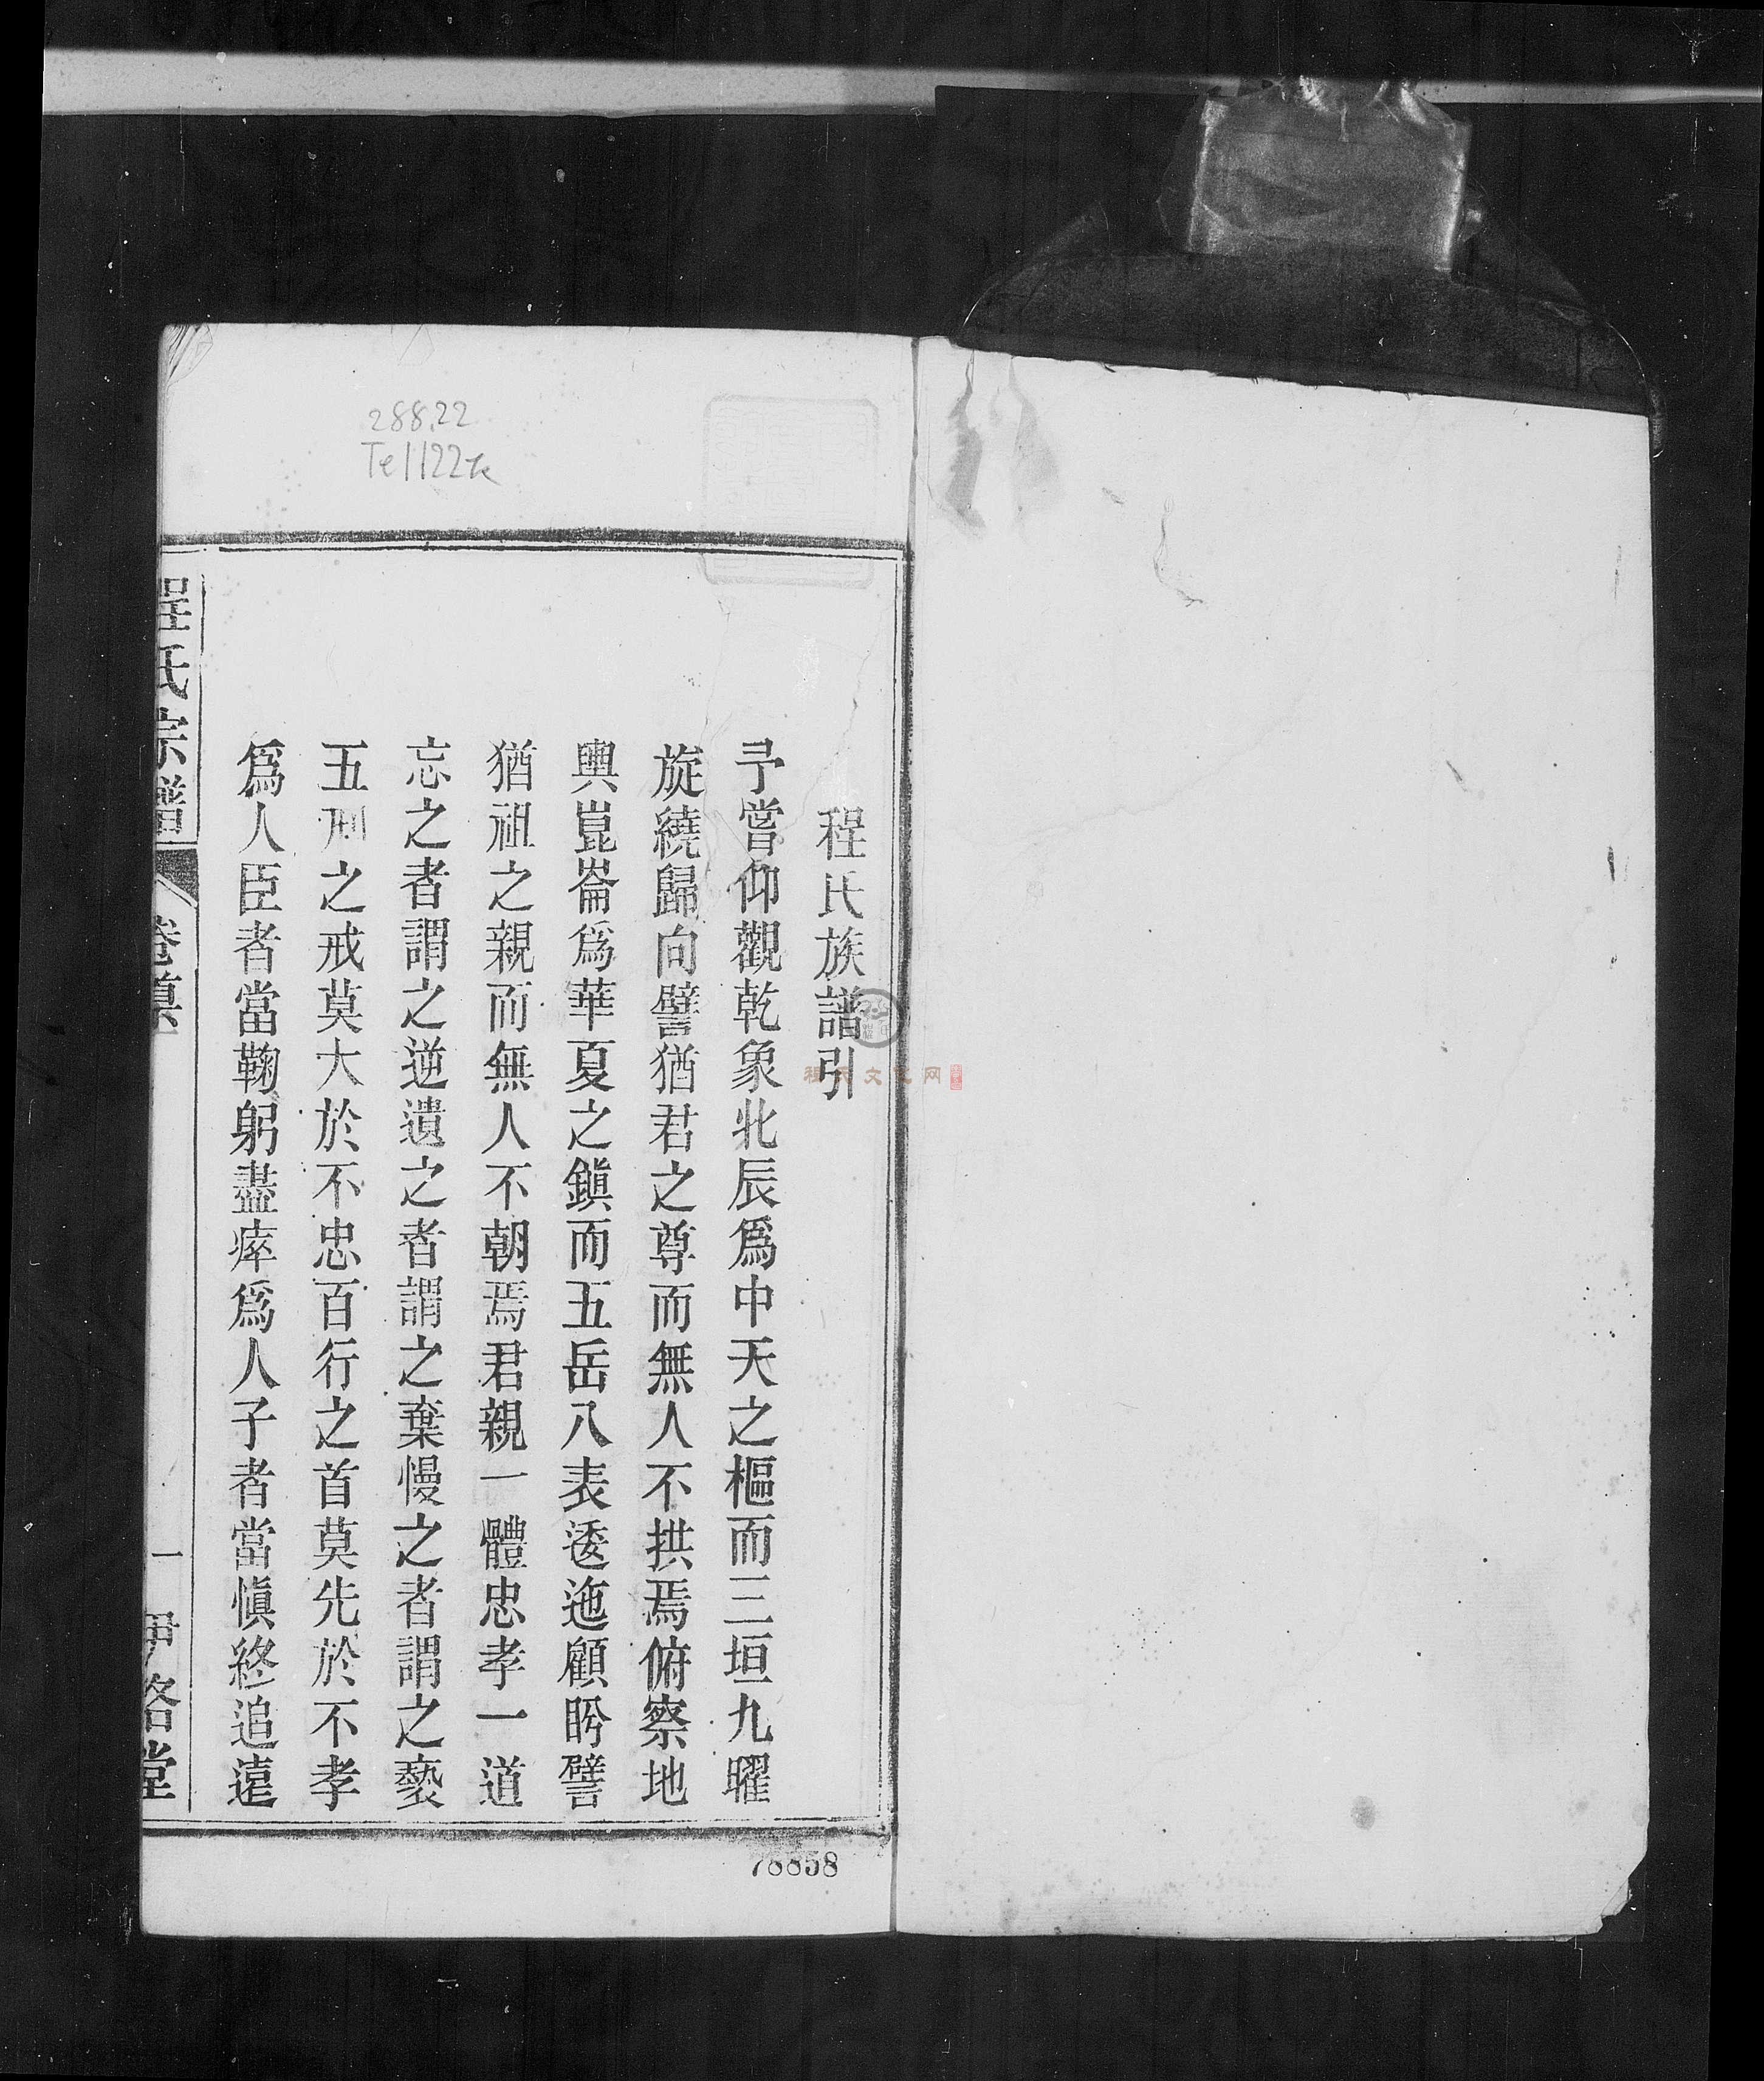 288.22
Te1122te
程氏族譜引
予嘗仰觀乾象北辰爲中天之樞而三垣九曜
旋繞歸向譬猶君之尊而無人不拱焉俯察地
輿崑崙爲華夏之鎭而五岳八表逶迤顧盻譬
猶祖之親而無人不朝焉君親一體忠孝一道
忘之者謂之逆遺之者謂之棄慢之者謂之褻
五刑之戒莫大於不忠百行之首莫先於不孝
爲人臣者當鞠躬盡瘁爲人子者當愼終追遠
程氏宗譜 卷眞 一 伊洛堂
78858
程氏文化网